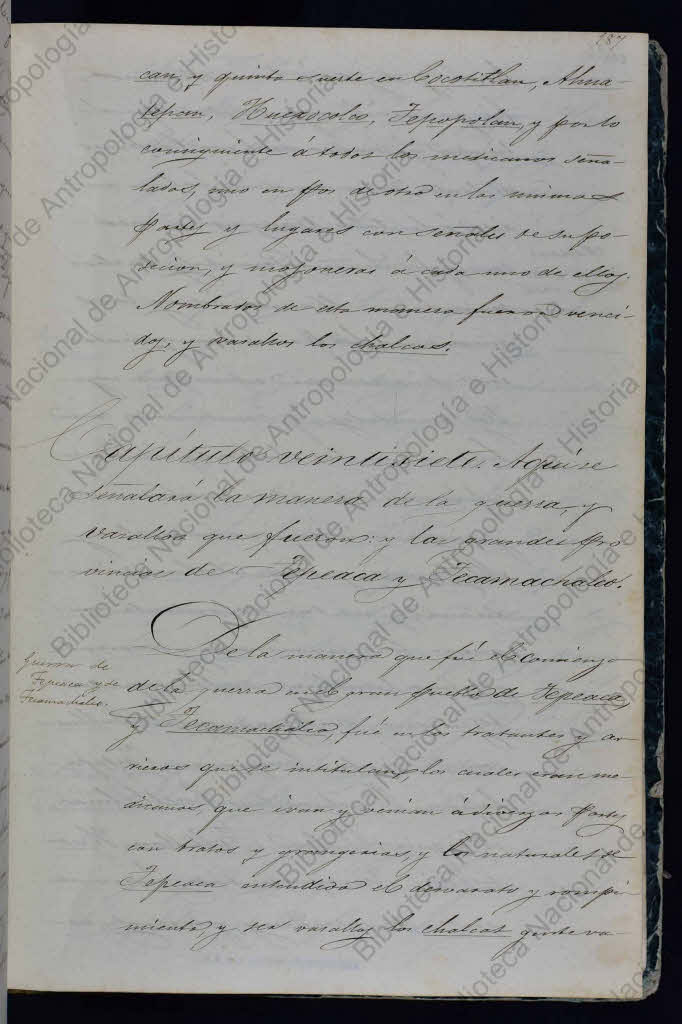 187
can, y quinta suerte en Cocotitlan, Ahua-
tepan, Huexocolco, Tepopolan, y por lo
consiguiente á todos los mexicanos seña-
lados, uno en pos de otro en las mismas
Partes y lugares con señales de su po-
sesion, y mojoneras á cada uno de ellos.
Nombrados de esta manera fueron venci-
dos, y vasallos los chalcas.
Capítulo veintisiete. Aquí se
señalará la manera de la guerra, y
vasallos que fueron: y las grandes pro
vincias de Tepeaca y Tecamachalco.
Guerra de
Tepeaca y de
Tecamachalco.
De la manera que fué el comienzo
de la guerra en el gran pueblo de Tepeaca
y Tecamachalco, fué en los tratantes y ar-
rieros que se intitulan, los cuales eran me-
xicanos, que ivan y venian á diversas Partes
con tratos y grangerias, y los naturales de
Tepeaca entendido el desvarato y rompi-
miento, y ser vasallos los chalcas gente va-
Biblioteca Nacional de Antropología e Historia